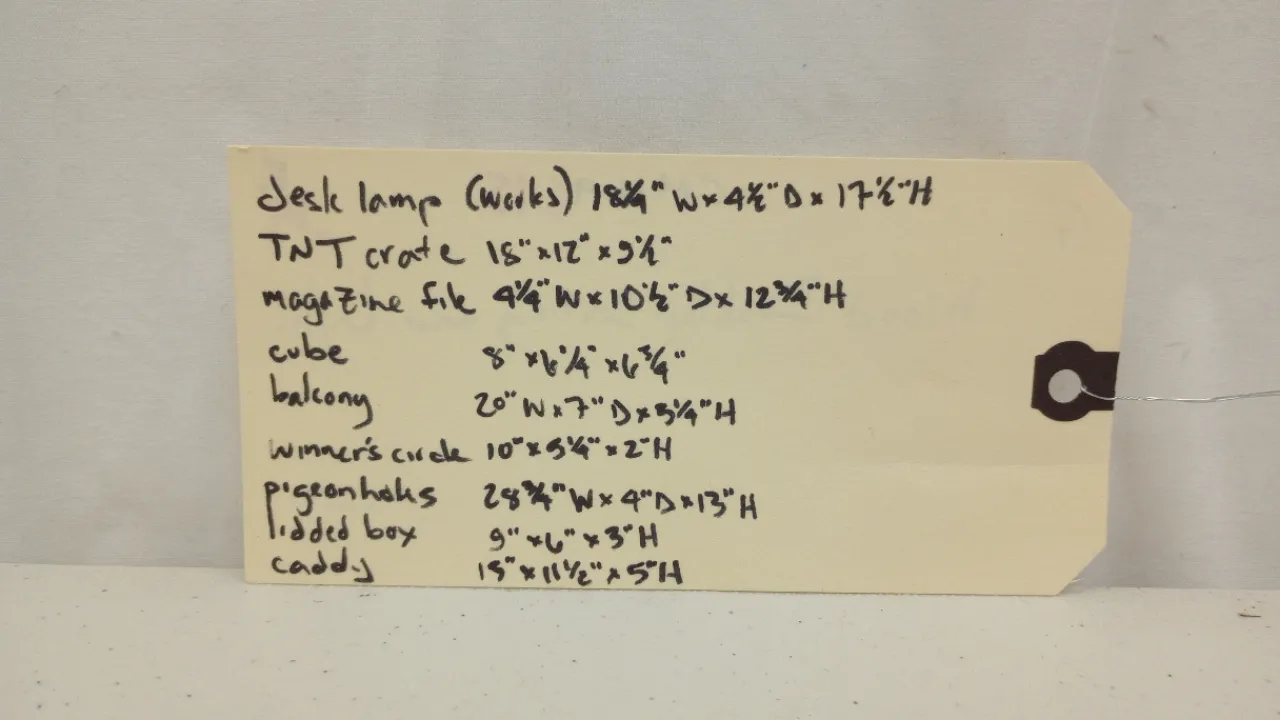 desk lamp (works) 18¼" W x 4½" D x 17½" H
TNT crate 18" x 12" x 9½"
magazine file 4¼" W x 10½" D x 12¾" H
cube 8" x 6¼" x 6¾"
balcony 20" W x 7" D x 3¼" H
winner's circle 10" x 5¼" x 2" H
pigeonholes 28¾" W x 4" D x 13" H
lidded box 9" x 6" x 3" H
caddy 15" x 11½" x 5" H